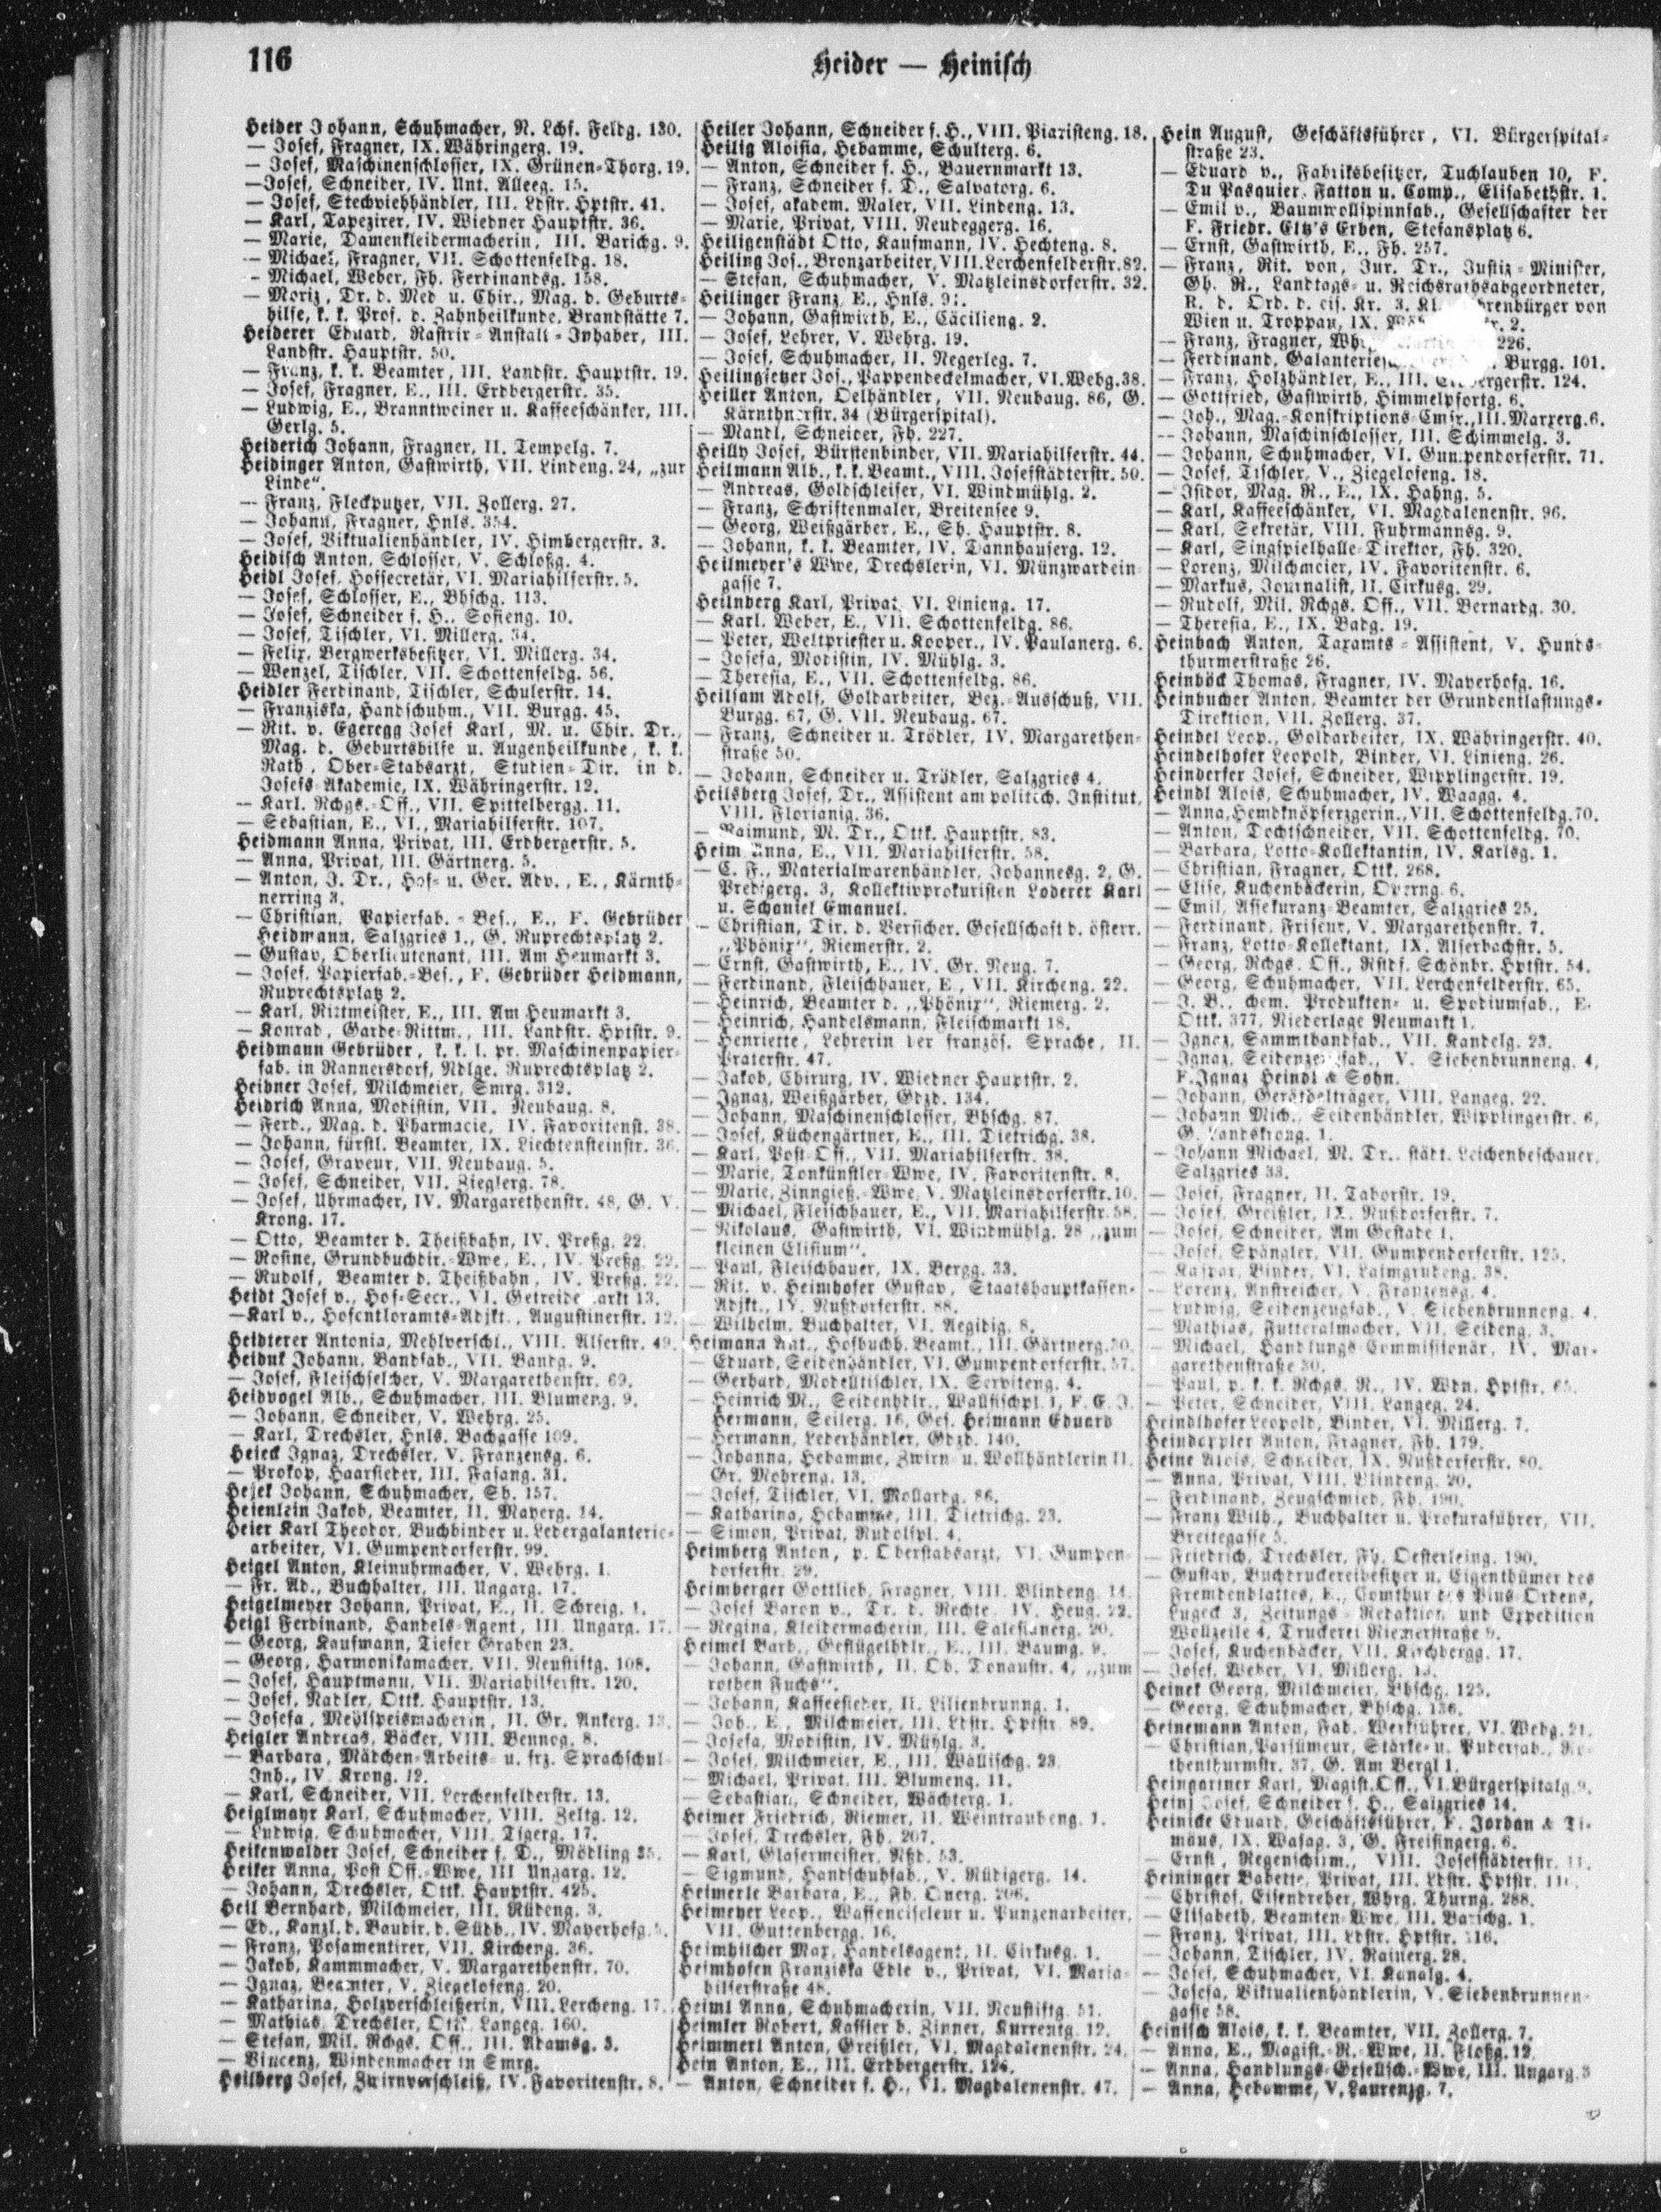 116
Heider — Heinisch
Heider Johann, Schuhmacher, N. Lchf. Feldg. 130.
— Josef, Fragner, IX. Währingerg. 19.
— Josef, Maschinenschlosser, IX. Grünen-Thorg. 19.
— Josef, Schneider, IV. Unt. Alleeg. 15.
— Josef, Stechviehhändler, III. Ldstr. Hptstr. 41.
— Karl, Tapezirer, IV. Wiedner Hauptstr. 36.
— Marie, Damenkleidermacherin, III. Barichg. 9.
— Michael, Fragner, VII. Schottenfeldg. 18.
— Michael, Weber, Fh. Ferdinandsg. 158.
— Moriz, Dr. d. Med u. Chir., Mag. d. Geburts-
hilfe, k. k. Prof. d. Zahnheilkunde, Brandstätte 7.
Heiderer Eduard, Rastrir-Anstalt-Inhaber, III.
Landstr. Hauptstr. 50.
— Franz, k. k. Beamter, III. Landstr. Hauptstr. 19.
— Josef, Fragner, E., III. Erdbergerstr. 35.
— Ludwig, E., Branntweiner u. Kaffeeschänker, III.
Gerlg. 5.
Heiderich Johann, Fragner, II. Tempelg. 7.
Heidinger Anton, Gastwirth, VII. Lindeng. 24, „zur
Linde“.
— Franz, Fleckputzer, VII. Zollerg. 27.
— Johann, Fragner, Hnls. 354.
— Josef, Viktualienhändler, IV. Himbergerstr. 3.
Heidisch Anton, Schlosser, V. Schloßg. 4.
Heidl Josef, Hofsecretär, VI. Mariahilferstr. 5.
— Josef, Schlosser, E., Bhschg. 113.
— Josef, Schneider f. H., Sofieng. 10.
— Josef, Tischler, VI. Millerg. 34.
— Felix, Bergwerksbesitzer, VI. Millerg. 34.
— Wenzel, Tischler, VII. Schottenfeldg. 56.
Heidler Ferdinand, Tischler, Schulerstr. 14.
— Franziska, Handschuhm., VII. Burgg. 45.
— Rit. v. Egeregg Josef Karl, M. u. Chir. Dr.,
Mag. d. Geburtshilfe u. Augenheilkunde, k. k.
Rath, Ober-Stabsarzt, Studien-Dir. in d.
Josefs-Akademie, IX. Währingerstr. 12.
— Karl, Rchgs.-Off., VII. Spittelbergg. 11.
— Sebastian, E., VI., Mariahilferstr. 107.
Heidmann Anna, Privat, III. Erdbergerstr. 5.
— Anna, Privat, III. Gärtnerg. 5.
— Anton, J. Dr., Hof- u. Ger. Adv., E., Kärnth-
nerring 3.
— Christian, Papierfab.-Bes., E., F. Gebrüder
Heidmann, Salzgries 1., G. Ruprechtsplatz 2.
— Gustav, Oberlieutenant, III. Am Heumarkt 3.
— Josef, Papierfab.-Bes., F. Gebrüder Heidmann,
Ruprechtsplatz 2.
— Karl, Rittmeister, E., III. Am Heumarkt 3.
— Konrad, Garde-Rittm., III. Landstr. Hptstr. 9.
Heidmann Gebrüder, k. k. l. pr. Maschinenpapier-
fab. in Rannersdorf, Ndlge. Ruprechtsplatz 2.
Heidner Josef, Milchmeier, Smrg. 312.
Heidrich Anna, Modistin, VII. Neubaug. 8.
— Ferd., Mag. d. Pharmacie, IV. Favoritenst. 38.
— Johann, fürstl. Beamter, IX. Liechtensteinstr. 36.
— Josef, Graveur, VII. Neubaug. 5.
— Josef, Schneider, VII. Zieglerg. 78.
— Josef, Uhrmacher, IV. Margarethenstr. 48, G. V.
Krong. 17.
— Otto, Beamter d. Theißbahn, IV. Preßg. 22.
— Rosine, Grundbuchdir.-Wwe, E., IV. Preßg. 22.
— Rudolf, Beamter d. Theißbahn, IV. Preßg. 22.
Heidt Josef v., Hof-Secr., VI. Getreidemarkt 13.
— Karl v., Hofcntloramts-Adjkt., Augustinerstr. 12.
Heidterer Antonia, Mehlverschl., VIII. Alserstr. 49.
Heiduk Johann, Bandfab., VII. Bandg. 9.
— Josef, Fleischselcher, V. Margarethenstr. 69.
Heidvogel Alb., Schuhmacher, III. Blumeng. 9.
— Johann, Schneider, V. Wehrg. 25.
— Karl, Drechsler, Hnls. Bachgasse 109.
Heieck Ignaz, Drechsler, V. Franzensg. 6.
— Prokop, Haarsieder, III. Fasang. 31.
Hejek Johann, Schuhmacher, Sh. 157.
Heienlein Jakob, Beamter, II. Mayerg. 14.
Heier Karl Theodor, Buchbinder u. Ledergalanterie-
arbeiter, VI. Gumpendorferstr. 99.
Heigel Anton, Kleinuhrmacher, V. Wehrg. 1.
— Fr. Ad., Buchhalter, III. Ungarg. 17.
Heigelmeyer Johann, Privat, E., II. Schreig. 1.
Heigl Ferdinand, Handels-Agent, III. Ungarg. 17.
— Georg, Kaufmann, Tiefer Graben 23.
— Georg, Harmonikamacher, VII. Neustiftg. 108.
— Josef, Hauptmann, VII. Mariahilferstr. 120.
— Josef, Nadler, Ottk. Hauptstr. 13.
— Josefa, Mehlspeismacherin, II. Gr. Ankerg. 13.
Heigler Andreas, Bäcker, VIII. Bennog. 8.
— Barbara, Mädchen-Arbeits- u. frz. Sprachschul
Inh., IV. Krong. 12.
— Karl, Schneider, VII. Lerchenfelderstr. 13.
Heiglmayr Karl, Schuhmacher, VIII. Zeltg. 12.
— Ludwig, Schuhmacher, VIII. Tigerg. 17.
Heikenwalder Josef, Schneider f. D., Mödling 25.
Heiker Anna, Post Off.-Wwe, III Ungarg. 12.
— Johann, Drechsler, Ottk. Hauptstr. 425.
Heil Bernhard, Milchmeier, III. Rüdeng. 3.
— Ed., Kanzl. d. Baudir. d. Südb., IV. Mayerhofg.
— Franz, Posamentirer, VII. Kircheng. 36.
— Jakob, Kammmacher, V. Margarethenstr. 70.
— Ignaz, Beamter, V. Ziegelofeng. 20.
— Katharina, Holzverschleißerin, VIII. Lercheng. 17.
— Mathias, Drechsler, Ottk. Langeg. 160.
— Stefan, Mil. Rchgs. Off., III. Adamsg. 3.
— Vincenz, Windenmacher in Smrg.
Heilberg Josef, Zwirnverschleiß, IV. Favoritenstr. 8.
Heiler Johann, Schneider f. H., VIII. Piaristeng. 18.
Heilig Aloisia, Hebamme, Schulterg. 6.
— Anton, Schneider f. H., Bauernmarkt 13.
— Franz, Schneider f. D., Salvatorg. 6.
— Josef, akadem. Maler, VII. Lindeng. 13.
— Marie, Privat, VIII. Neudeggerg. 16.
Heiligenstädt Otto, Kaufmann, IV. Hechteng. 8.
Heiling Jos., Bronzarbeiter, VIII. Lerchenfelderstr. 82.
— Stefan, Schuhmacher, V. Matzleinsdorferstr. 32.
Heilinger Franz, E., Hnls.
— Johann, Gastwirth, E., Cäcilieng. 2.
— Josef, Lehrer, V. Wehrg. 19.
— Josef, Schuhmacher, II. Negerleg. 7.
Heilingsetzer Jos., Pappendeckelmacher, VI. Webg. 38.
Heiller Anton, Oelhändler, VII. Neubaug. 86, G.
Kärnthnerstr. 34 (Bürgerspital).
— Mandl, Schneider, Fh. 227.
Heilly Josef, Bürstenbinder, VII. Mariahilferstr. 44.
Heilmann Alb., k. k. Beamt., VIII. Josefstädterstr. 50.
— Andreas, Goldschleifer, VI. Windmühlg. 2.
— Franz, Schriftenmaler, Breitensee 9.
— Georg, Weißgärber, E., Sh. Hauptstr. 8.
— Johann, k. k. Beamter, IV. Dannhauserg. 12.
Heilmeyer's Wwe, Drechslerin, VI. Münzwardein
gasse 7.
Heilnberg Karl, Privat, VI. Linieng. 17.
— Karl, Weber, E., VII. Schottenfeldg. 86.
— Peter, Weltpriester u. Kooper., IV. Paulanerg. 6.
— Josefa, Modistin, IV. Mühlg. 3.
— Theresia, E., VII. Schottenfeldg. 86.
Heilsam Adolf, Goldarbeiter, Bez.-Ausschuß, VII.
Burgg. 67, G. VII. Neubaug. 67.
— Franz, Schneider u. Trödler, IV. Margarethen-
straße 50.
— Johann, Schneider u. Trödler, Salzgries 4.
Heilsberg Josef, Dr., Assistent am politech. Institut,
VIII. Florianig. 36.
— Raimund, M. Dr., Ottk. Hauptstr. 83.
Heim Anna, E., VII. Mariahilferstr. 58.
— C. F., Materialwarenhändler, Johannesg. 2, G.
Predigerg. 3, Kollektivprokuristen Loderer Karl
u. Schaniel Emanuel.
— Christian, Dir. d. Versicher. Gesellschaft d. österr.
„Phönix“, Riemerstr. 2.
— Ernst, Gastwirth, E., IV. Gr. Neug. 7.
— Ferdinand, Fleischhauer, E., VII. Kircheng. 22.
— Heinrich, Beamter d. „Phönix“, Riemerg. 2.
— Heinrich, Handelsmann, Fleischmarkt 18.
— Henriette, Lehrerin der französ. Sprache, II.
Praterstr. 47.
— Jakob, Chirurg, IV. Wiedner Hauptstr. 2.
— Ignaz, Weißgärber, Gdzd. 134.
— Johann, Maschinenschlosser, Bhschg. 87.
— Josef, Küchengärtner, E., III. Dietrichg. 38.
— Karl, Post-Off., VII. Mariahilferstr. 38.
— Marie, Tonkünstler-Wwe, IV. Favoritenstr. 8.
— Marie, Zinngieß.-Wwe, V. Matzleinsdorferstr. 10.
— Michael, Fleischhauer, E., VII. Mariahilferstr. 58.
— Nikolaus, Gastwirth, VI. Windmühlg. 28 „zum
kleinen Elisium“.
— Paul, Fleischhauer, IX. Bergg. 33.
— Rit. v. Heimhofer Gustav, Staatshauptkassen-
Adjkt., IV. Nußdorferstr. 88.
— Wilhelm, Buchhalter, VI. Aegidig. 8.
Heimann Ant., Hofbuchh. Beamt., III. Gärtnerg. 30.
— Eduard, Seidenhändler, VI. Gumpendorferstr. 57.
— Gerhard, Modelltischler, IX. Serviteng. 4.
— Heinrich M., Seidenhdlr., Wallfischpl. 1, F. E. J.
Hermann, Seilerg. 16, Ges. Heimann Eduard
— Hermann, Lederhändler, Gdzd. 140.
— Johanna, Hebamme, Zwirn- u. Wollhändlerin II.
Gr. Mohreng. 13.
— Josef, Tischler, VI. Mollardg. 86.
— Katharina, Hebamme, III. Dietrichg. 23.
— Simon, Privat, Rudolfpl. 4.
Heimberg Anton, p. Oberstabsarzt, VI. Gumpen-
dorferstr. 29.
Heimberger Gottlieb, Fragner, VIII. Blindeng. 14.
— Josef Baron v., Dr. d. Rechte, IV. Heug. 22.
— Regina, Kleidermacherin, III. Salesianerg. 20.
Heimel Barb., Geflügelhdlr., E., III. Baumg. 9.
— Johann, Gastwirth, II. Ob. Donaustr. 4, „zum
rothen Fuchs“.
— Johann, Kaffeesieder, II. Lilienbrunng. 1.
— Joh., E., Milchmeier, III. Ldstr. Hptstr. 89.
— Josefa, Modistin, IV. Mühlg. 3.
— Josef, Milchmeier, E., III. Wällischg. 23
— Michael, Privat, III. Blumeng. 11.
— Sebastian, Schneider, Wächterg. 1.
Heimer Friedrich, Riemer, II. Weintraubeng. 1.
— Josef, Drechsler, Fh. 207.
— Karl, Glasermeister, Nßd. 53.
— Sigmund, Handschuhfab., V. Rüdigerg. 14.
Heimerle Barbara, E., Fh. Querg. 206.
Heimeyer Leop., Waffenciseleur u. Punzenarbeiter,
VII. Guttenbergg. 16.
Heimhilcher Max, Handelsagent, II. Cirkusg. 1.
Heimhofen Franziska Edle v., Privat, VI. Maria-
hilferstraße 48.
Heiml Anna, Schuhmacherin, VII. Neustiftg. 51.
Heimler Robert, Kassier b. Zinner, Kurrentg. 12.
Heimmerl Anton, Greißler, VI. Magdalenenstr. 24.
Hein Anton, E., III. Erdbergerstr. 124.
— Anton, Schneider f. H., VI. Magdalenenstr. 47.
Hein August, Geschäftsführer, VI. Bürgerspital-
straße 23.
— Eduard v., Fabriksbesitzer, Tuchlauben 10, F.
Du Pasquier, Fatton u. Comp., Elisabethstr. 1.
— Emil v., Baumwollspinnfab., Gesellschafter der
F. Friedr. Eltz's Erben, Stefansplatz 6.
— Ernst, Gastwirth, E., Fh. 257.
— Franz, Rit. von, Jur. Dr., Justiz-Minister,
Gh. R., Landtags- u. Reichsrathsabgeordneter,
R. d. Ord. d. eis. Kr. 3. Kl. hrenbürger von
Wien u. Troppau, IX. r. 2.
— Franz, Fragner, 226.
— Ferdinand, Burgg. 101.
— Franz, Holzhändler, E., III. Erdbergerstr. 124.
— Gottfried, Gastwirth, Himmelpfortg. 6.
— Joh., Mag.-Konskriptions-Cmsr., III. Marxerg. 6.
— Johann, Maschinschlosser, III. Schimmelg. 3.
— Johann, Schuhmacher, VI. Gumpendorferstr. 71.
— Josef, Tischler, V., Ziegelofeng. 18.
— Isidor, Mag. R., E., IX. Hahng. 5.
— Karl, Kaffeeschänker, VI. Magdalenenstr. 96.
— Karl, Sekretär, VIII. Fuhrmannsg. 9.
— Karl, Singspielhalle-Direktor, Fh. 320.
— Lorenz, Milchmeier, IV. Favoritenstr. 6.
— Markus, Journalist, II. Cirkusg. 29.
— Rudolf, Mil. Rchgs. Off., VII. Bernardg. 30.
— Theresia, E., IX. Badg. 19.
Heinbach Anton, Taxamts-Assistent, V. Hunds-
thurmerstraße 26.
Heinböck Thomas, Fragner, IV. Mayerhofg. 16.
Heinbucher Anton, Beamter der Grundentlastungs-
Direktion, VII. Zollerg. 37.
Heindel Leop., Goldarbeiter, IX. Währingerstr. 40.
Heindelhofer Leopold, Binder, VI. Linieng. 26.
Heinderfer Josef, Schneider, Wipplingerstr. 19.
Heindl Alois, Schuhmacher, IV. Waagg. 4.
— Anna, Hemdknöpferzgerin., VII. Schottenfeldg. 70.
— Anton, Dochtschneider, VII. Schottenfeldg. 70.
— Barbara, Lotto-Kollektantin, IV. Karlsg. 1.
— Christian, Fragner, Ottk. 268.
— Elise, Kuchenbäckerin, Operng. 6.
— Emil, Assekuranz-Beamter, Salzgries 25.
— Ferdinand, Friseur, V. Margarethenstr. 7.
— Franz, Lotto-Kollektant, IX. Alserbachstr. 5.
— Georg, Rchgs. Off., Rstdf. Schönbr. Hptstr. 54.
— Georg, Schuhmacher, VII. Lerchenfelderstr. 65.
— J. B., chem. Produkten- u. Spodiumfab., E.
Ottk. 377, Niederlage Neumarkt 1.
— Ignaz, Sammtbandfab., VII. Kandelg. 23.
— Ignaz, Seidenzeugfab., V. Siebenbrunneng. 4,
F. Ignaz Heindl & Sohn.
— Johann, Gerätdelträger, VIII. Langeg. 22.
— Johann Mich., Seidenhändler, Wipplingerstr. 6,
G. Landskrong. 1.
— Johann Michael, M. Dr., städt. Leichenbeschauer,
Salzgries 33.
— Josef, Fragner, II. Taborstr. 19.
— Josef, Greißler, IX. Nußdorferstr. 7.
— Josef, Schneider, Am Gestade 1.
— Josef, Spängler, VII. Gumpendorferstr. 125.
— Kaspar, Binder, VI. Laimgrubeng. 38.
— Lorenz, Anstreicher, V. Franzensg. 4.
— Ludwig, Seidenzeugfab., V. Siebenbrunneng. 4.
— Mathias, Futteralmacher, VII. Seideng. 3.
— Michael, Handlungs-Commissionär, IV. Mar-
garethenstraße 30.
— Paul, p. k. k. Rchgs. R., IV. Wdn. Hptstr.
— Peter, Schneider, VIII. Langeg. 24.
Heindlhofer Leopold, Binder, VI. Millerg. 7.
Heindoppler Anton, Fragner, Fh. 179.
Heine Alois, Schneider, IX. Nußdorferstr. 80.
— Anna, Privat, VIII. Blindeng. 20.
— Ferdinand, Zeugschmied, Fh. 190.
— Franz Wilh., Buchhalter u. Prokuraführer, VII.
Breitegasse 5.
— Friedrich, Drechsler, Fh. Oesterleing. 190.
— Gustav, Buchdruckereibesitzer u. Eigenthümer des
Fremdenblattes, E., Comthur des Pius-Ordens,
Lugeck 3, Zeitungs-Redaktion und Expedition
Wollzeile 4, Druckerei Riemerstraße 9.
— Josef, Kuchenbäcker, VII. Kirchbergg. 17.
— Josef, Weber, VI. Millerg. 13.
Heinek Georg, Milchmeier, Bhschg. 125.
— Georg, Schuhmacher, Bhschg. 136.
Heinemann Anton, Fab.-Werkführer, VI. Webg. 21.
— Christian, Parfümeur, Stärke- u. Puderfab., Ro-
thenthurmstr. 37, G. Am Bergl 1.
Heingartner Karl, Magist. Off., VI. Bürgerspitalg. 9.
Heinj Josef, Schneider f. H., Salzgries 14.
Heinicke Eduard, Geschäftsführer, F. Jordan & Ti-
mäus, IX. Wasag. 3, G. Freisingerg. 6.
— Ernst, Regenschirm., VIII. Josefstädterstr. 11.
Heininger Babette, Privat, III. Ldstr. Hptstr.
— Christof, Eisendreher, Whrg. Thurng. 288.
— Elisabeth, Beamten-Wwe, III. Barichg. 1.
— Franz, Privat, III. Ldstr. Hptstr. 116.
— Johann, Tischler, IV. Rainerg. 28.
— Josef, Schuhmacher, VI. Kanalg. 4.
— Josefa, Viktualienhändlerin, V. Siebenbrunnen-
gasse 58.
Heinisch Alois, k. k. Beamter, VII. Zollerg. 7.
— Anna, E., Magist.-R.-Wwe, II. Floßg. 12.
— Anna, Handlungs-Gesellsch.-Wwe, III. Ungarg. 3
— Anna, Hebamme, V. Laurenzg. 7.